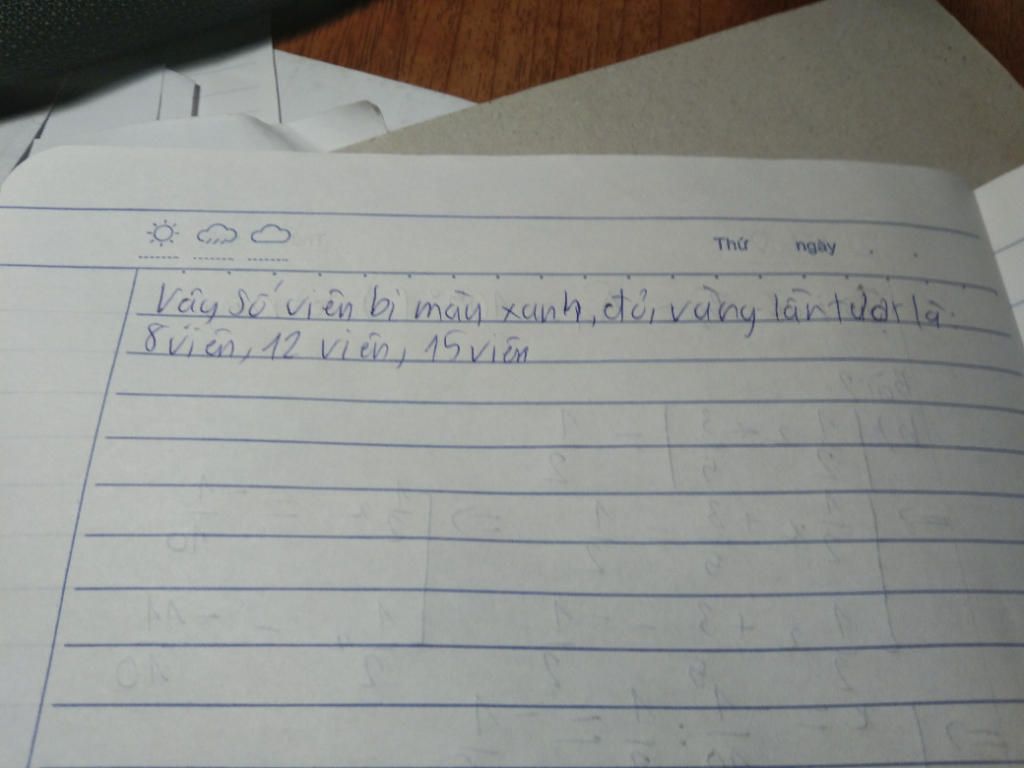 Thứ ngày
Vậy số viên bi màu xanh, đỏ, vàng lần lượt là
8 viên, 12 viên, 15 viên